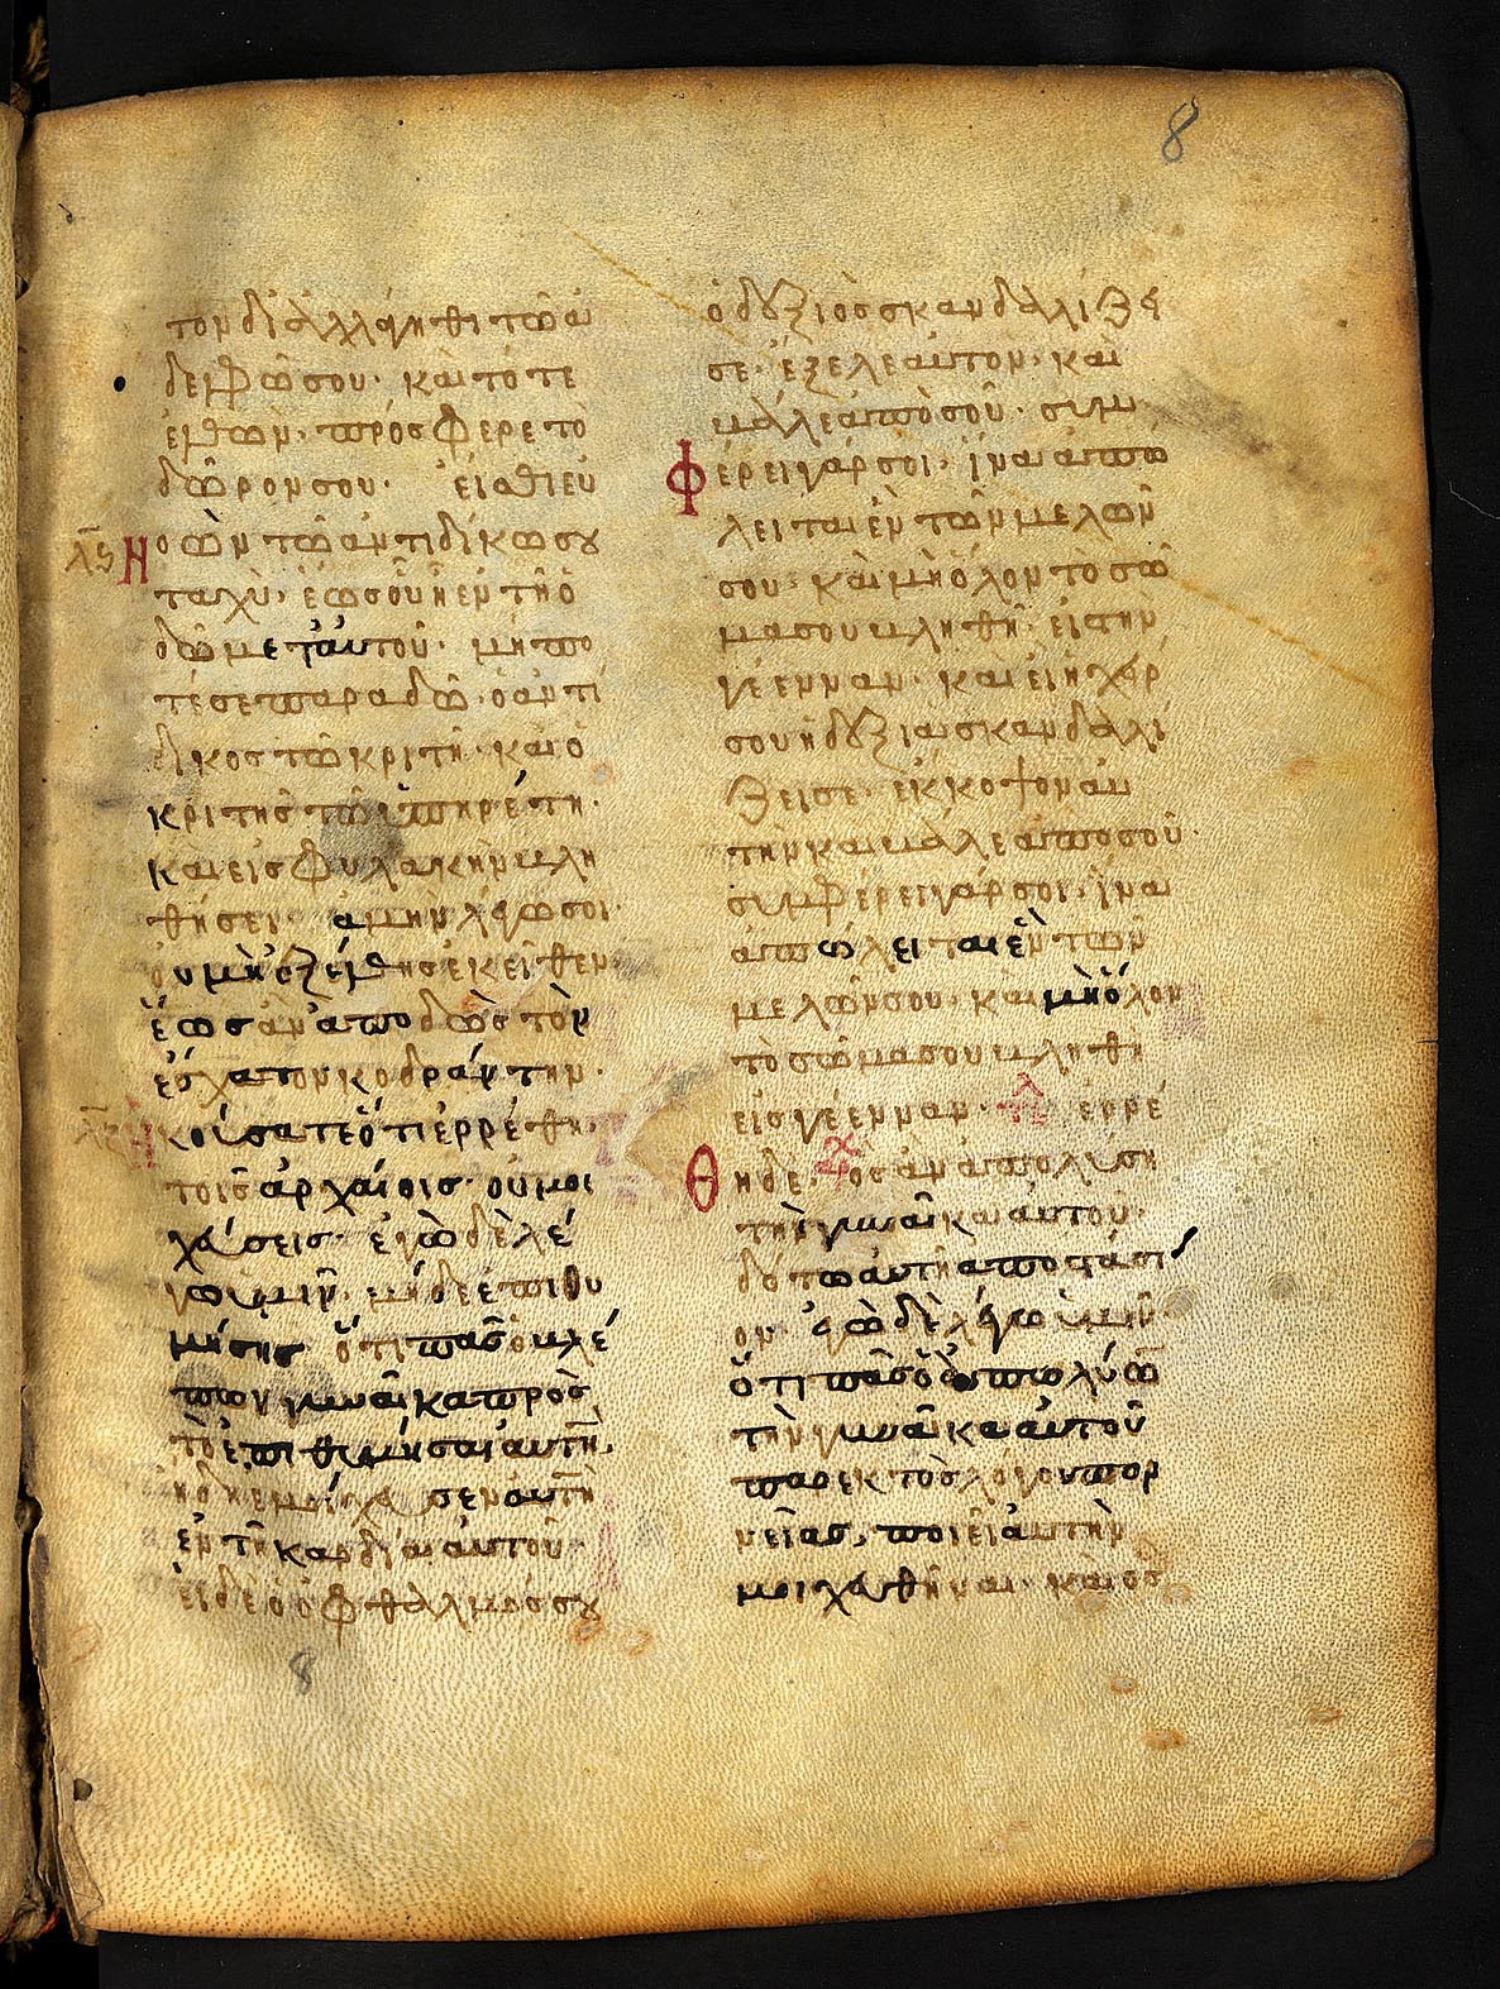 8
τον διαλλάγηθι τῶ ἀ
δελφῶ σου· και τότε
ἐλθὼν· πρόσφερε τὸ
δῶρον σου· ἴσθι εὐ
λϚ Νοῶν τῶ ἀντιδίκω σου
ταχὺ· ἕως οὗ εἶ ἐν τῆ ὁ
δῶ μετ' αυτοῦ· μήπο
τέ σε παραδῶ· ὁ αντί
δικος τῶ κριτῆ· και ὁ
κριτὴς τῶ ὑπηρέτη·
και εἰς φυλακὴν βλη
θήσει· ἀμὴν λέγω σοι·
ου μὴ ἐξέλθης ἐκεῖθεν·
ἕως ἀν ἀποδῶς τὸν
ἔσχατον κοδράντην·
κούσατε ὅτι ἐρρέθη·
τοῖς ἀρχαίοις· οὐ μοι
χεύσεις· ἐγὼ δὲ λέ
γω ὑμῖν·
μήσης· ὅτι πᾶς ὁ βλέ
πων γυναῖκα πρὸς
τὸ ἐπιθυμῆσαι αυτὴ·
ἤδη ἐμοίχευσεν αυτὴ
ἐν τῆ καρδία αυτοῦ·
εἰ δὲ ὁ ὀφθαλμός σου
ὁ δεξιὸς σκανδαλίζει
σε· ἔξελε αυτον· και
βάλε ἀπὸ σοῦ· συμ
Φέρει γάρ σοι· ἵνα ἀπό
λειται ἐν τῶν μελῶν
σου· και μὴ ὅλον τὸ σῶ
μα σου βληθῆ· εἰς τὴν
γέενναν· και εἰ ἡ χείρ
σου ἡ δεξιὰ σκανδαλί
ζει σε· ἔκκοψον αυ
τὴν και βάλε ἀπο σοῦ·
συμφέρει γάρ σοι· ἵνα
ἀπωλειται ἓν τῶν
μελῶν σου· και μὴ ὅλον
τὸ σῶμα σου βληθῆ
εἰς γέενναν· ἐρρέ
Θη δέ· ὃς ἀν ἀπολύση
τὴν γυναῖκα αυτοῦ·
δότω αυτῆ αποστάσι
ον· ἐγὼ δὲ λέγω ὑμῖν·
ὅτι πᾶς ὁ ἀπολύων
τὴν γυναῖκα αυτοῦ
παρεκτὸς λόγου πορ
νείας, ποιεῖ αυτὴν
μοιχευθῆναι· και ὃς
8